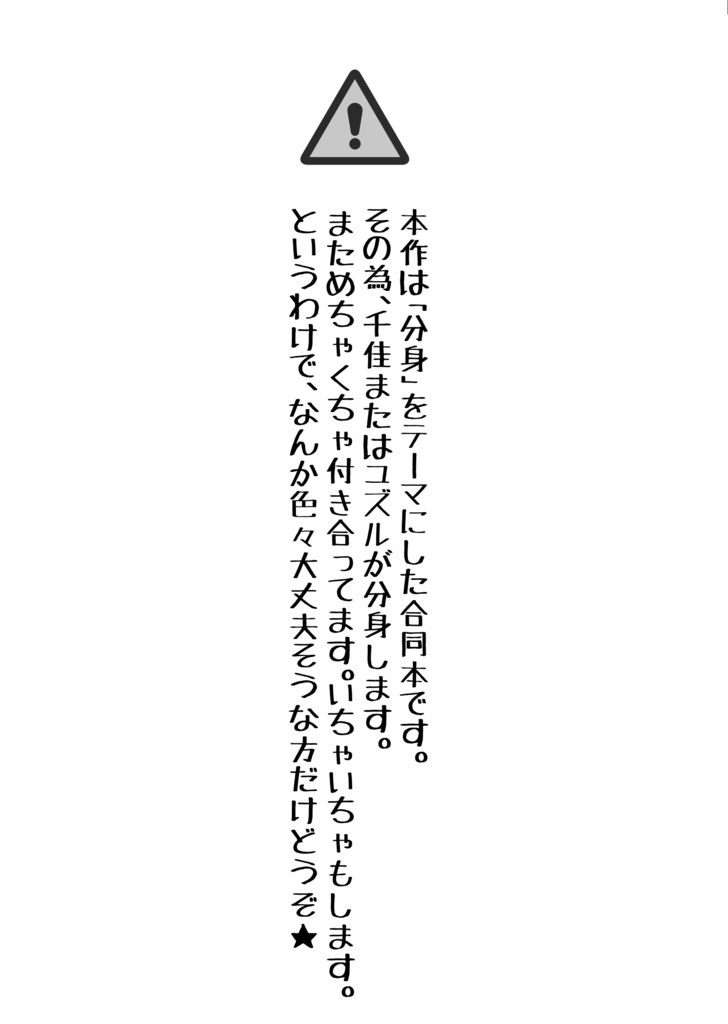 本作は「分身」をテーマにした合同本です。
その為、千佳またはユズルが分身します。
まためちゃくちゃ付き合ってます。いちゃいちゃもします。
というわけで、なんか色々大丈夫そうな方だけどうぞ★